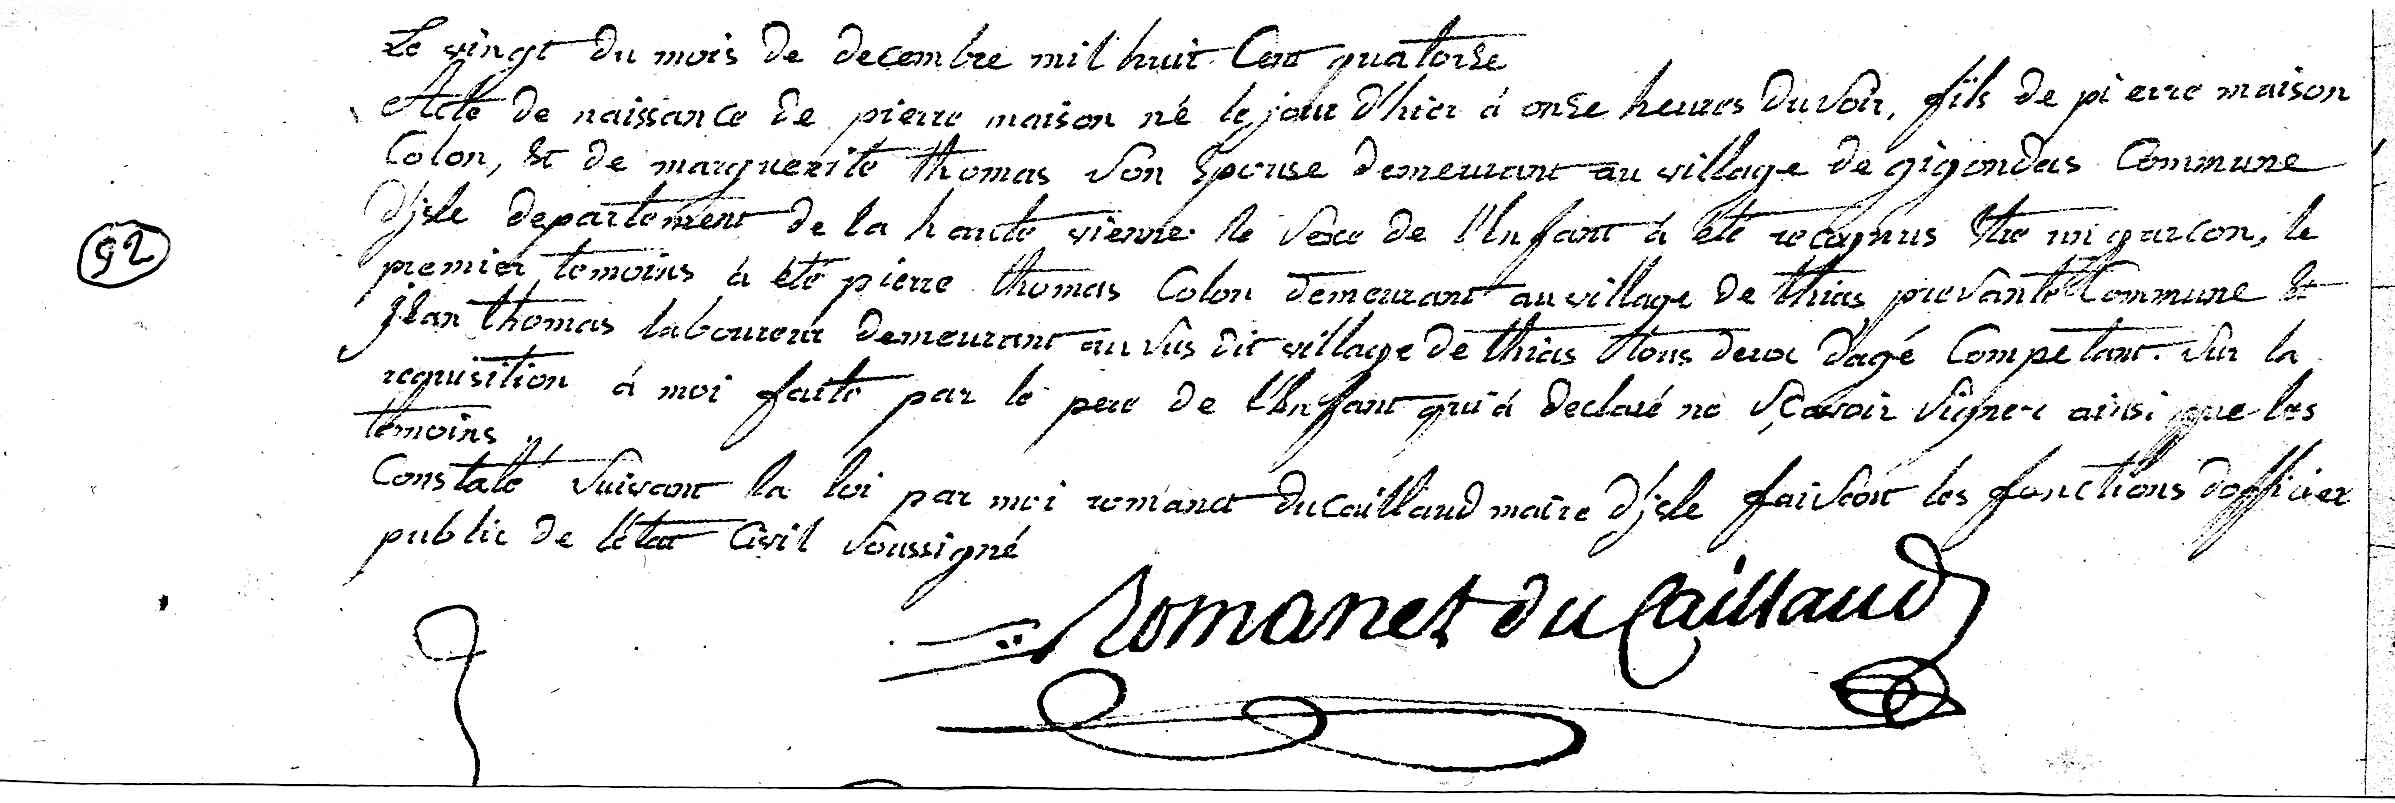 Le vingt du mois de decembre mil huit Cent quatorse
Acte de naissance de pierre maison né le jour d'hier à onse heures du soir, fils de pierre maison
Colon, Et de marguerite thomas son Epouse demeurant au village de gigondas Commune
d'jsle departement de la haute vienne. le sexe de l'Enfant à été reconnus Etre un garcon, le
92
premier temoins à été pierre thomas Colon demeurant au village de thias presante Commune Et
jean thomas laboureur demeurant au sus dit village de thias tous deux dagé Competant. Sur la
requisition à moi faite par le pere de l'Enfant qui à declaré ne sçavoir signer ainsi que les
temoins
Constaté suivant la loi par moi romanet ducaillaud maire d'jsle faisant les fonctions dofficier
public de l'état Civil soussigné
Romanet du Caillaud